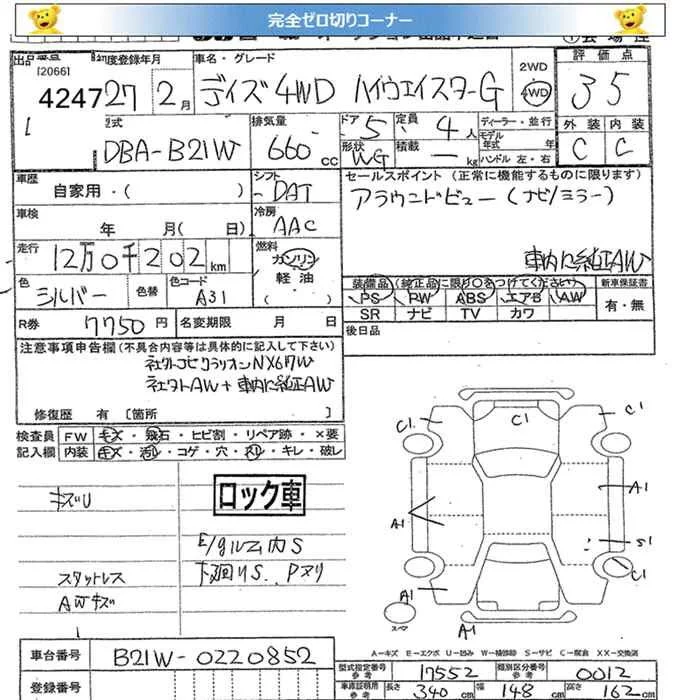 完全ゼロ切りコーナー
会場 座
出品番号 [2066] 初度登録年月 車名・グレード 2WD 4WD 評価点
4247 27年 2月 デイズ4WD ハイウェイスターG 35
1 型式 排気量 ドア 5 定員 4人 ディーラー・並行 外装 内装
モデル年式 年
DBA-B21W 660cc 形状 WG 積載 ー kg ハンドル 左・右 C C
車歴 自家用・( ) シフト DAT セールスポイント (正常に機能するものに限ります)
車検 年 月( 日) 冷房 AAC アラウンドビュー (ナビ/ミラー)
走行 12万0千202km 燃料 ガソリン 軽油 ( ) 車内に純正AW
色 シルバー 色替 色コード A31
装備品 (純正品に限り○をつけてください) 新車保証書
PS PW ABS エアB AW 有・無
SR ナビ TV カワ
R券 7750円 名変期限 月 日 後日品
注意事項申告欄(不具合内容等は具体的に記入して下さい)
社外ナビ クラリオンNX617W
社外AW+車内に純正AW
修復歴 有 [箇所 ]
検査員 FW キズ・飛石・ヒビ割・リペア跡・×要
記入欄 内装 キズ・汚れ・コゲ・穴・スリ・キレ・破レ
ロック車
キズU
E/gルーム内S
スタットレス 下廻りS. Pヌリ
AWキズ
C1 C1 C1
A1 A1
S1
A1 C1
A1
スペア
A-キズ E-エクボ U-凹み W-補修跡 S-サビ C-腐食 XX-交換済
車台番号 B21W-0220852
型式指定番号 参考 17552 類別区分番号 参考 0012
登録番号 車庫証明用 参考 長さ 340cm 幅 148cm 高さ 162cm